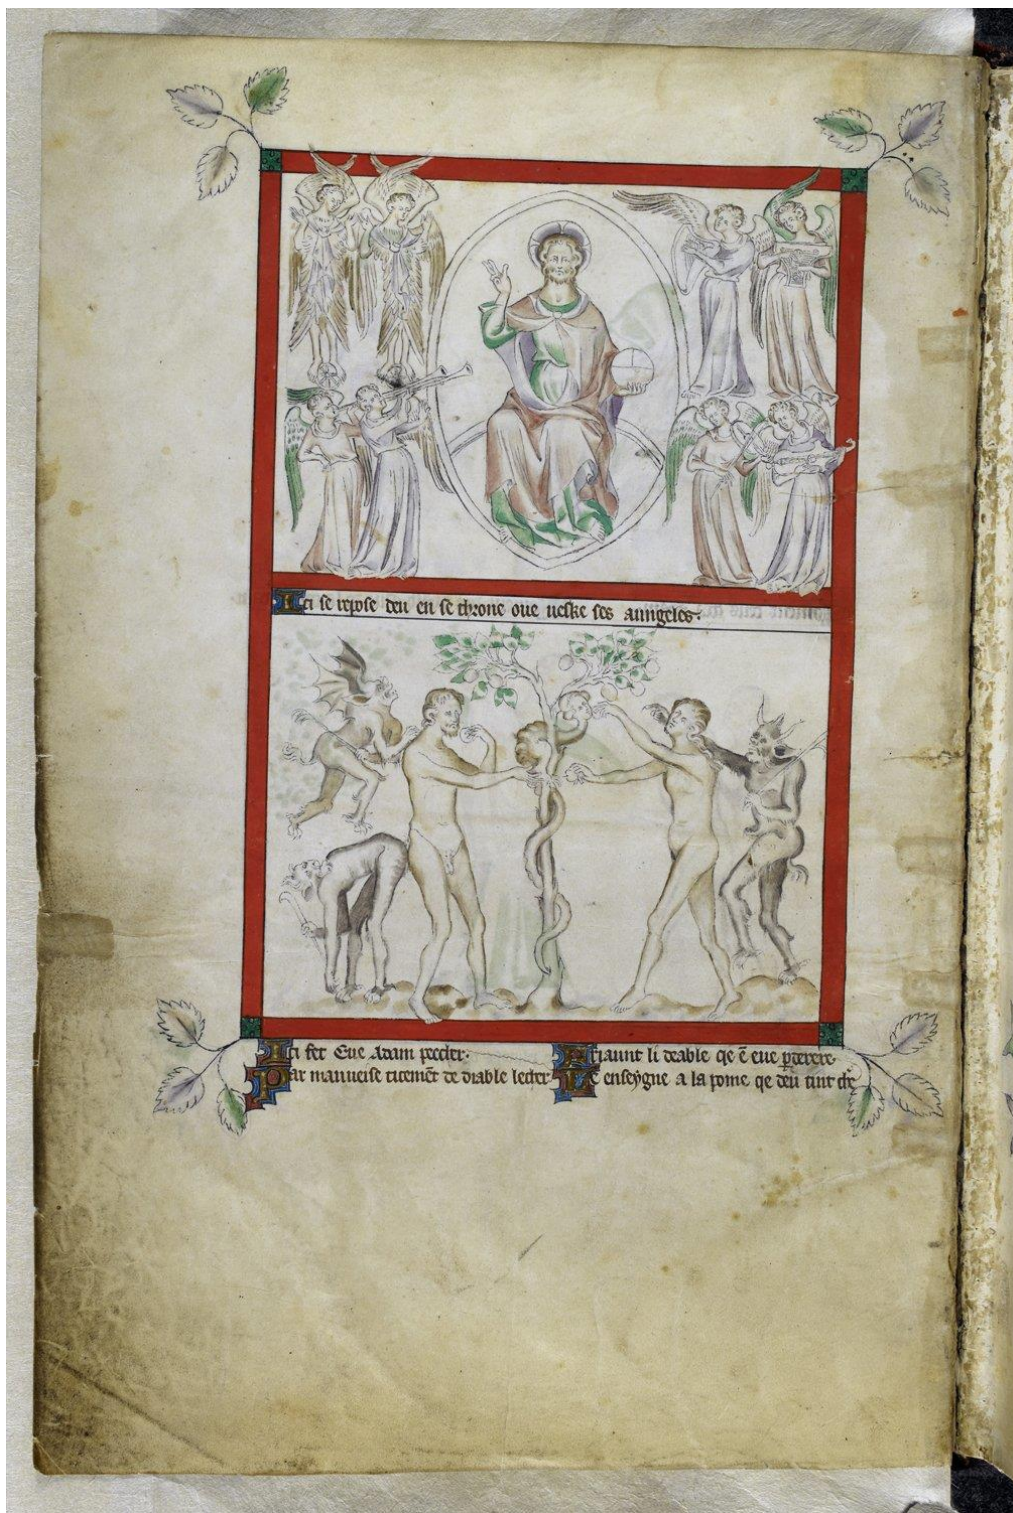 Ici se repose deu en se throne oue ueske ses aungeles.
Ici fet Eue Adam peccher.
Par mauueise ticemẽt de diable lecher
Priaunt li deable qe ẽ eue
Le enseygne a la pome qe deu tint